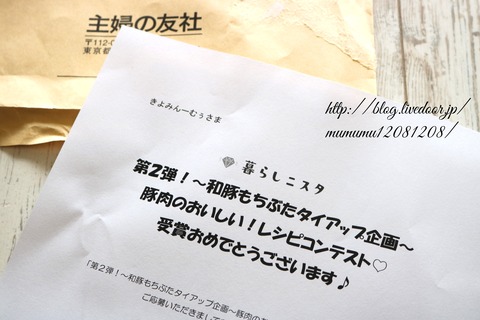 主婦の友社
〒112-
東京都
http://blog.livedoor.jp/
mumumu12081208/
きよみんーむぅさま
暮らしニスタ
第2弾！～和豚もちぶたタイアップ企画～
豚肉のおいしい！レシピコンテスト♡
受賞おめでとうございます♪
「第2弾！～和豚もちぶたタイアップ企画～豚肉のお
ご応募いただきまして